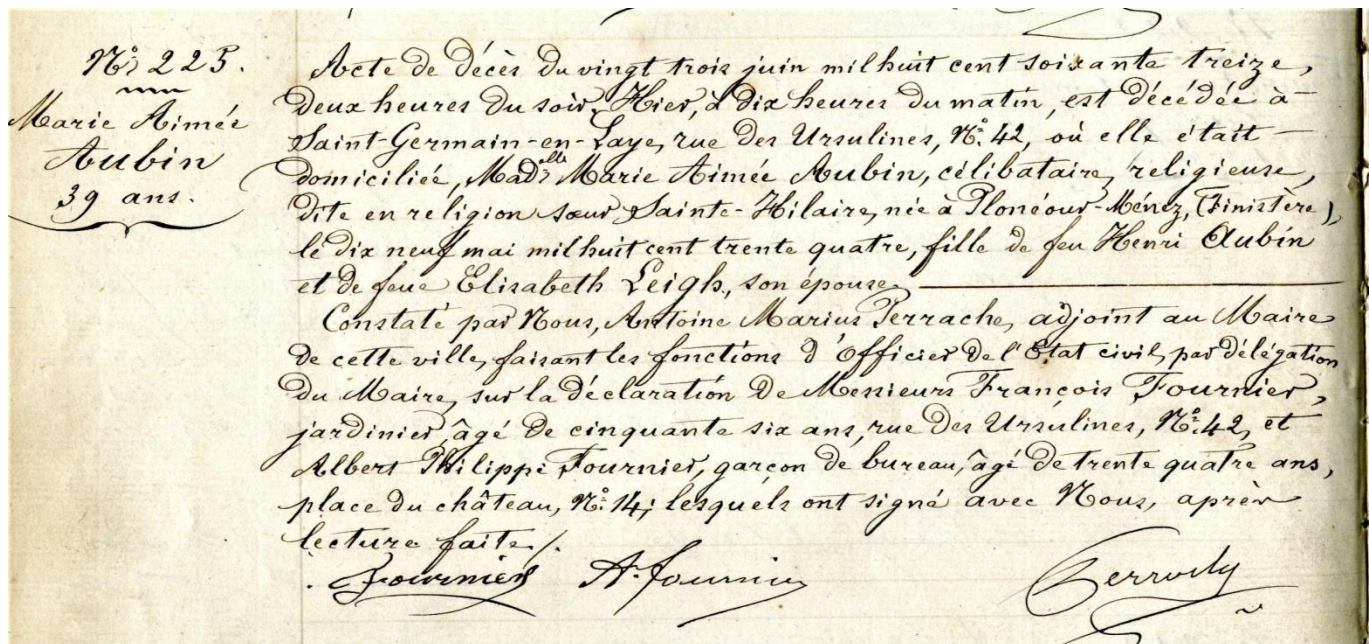 N.º 225.
Marie Aimée
Aubin
39 ans.
Acte de décès du vingt trois juin mil huit cent soixante treize,
deux heures du soir. Hier, à dix heures du matin, est décédée à
Saint-Germain-en-Laye, rue des Ursulines, N.º 42, où elle était
domiciliée, Mad.elle Marie Aimée Aubin, célibataire, religieuse,
dite en réligion sœur Sainte-Hilaire, née à Plonéour-Ménez, (Finistère),
le dix neuf mai mil huit cent trente quatre, fille de feu Henri Aubin
et de feue Elisabeth Leigh, son épouse.
Constaté par Nous, Antoine Marius Perrache, adjoint au Maire
de cette ville, faisant les fonctions d'Officier de l'Etat civil, par délégation
du Maire, sur la déclaration de Messieurs François Fournier,
jardinier, âgé de cinquante six ans, rue des Ursulines, N.º 42, et
Albert Philippe Fournier, garçon de bureau, âgé de trente quatre ans,
place du château, N.º 14; lesquels ont signé avec Nous, après
lecture faite /.
Fournier A. fournier